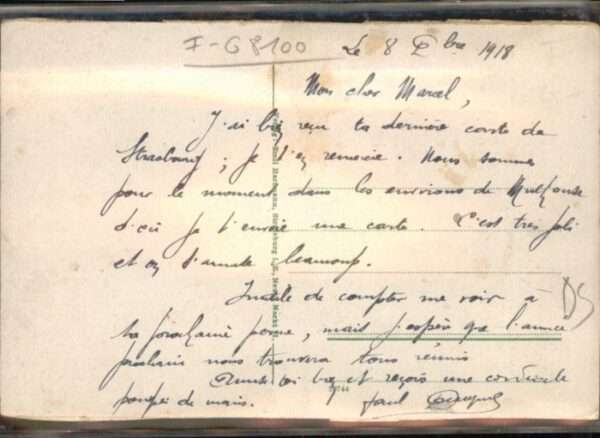 I-G8100
Le 8 Xbre 1918
Mon cher Marcel,
J'ai bien reçu ta dernière carte de
Strasbourg ; je t'en remercie. Nous sommes
pour le moment dans les environs de Mulhouse
d'où je t'envoie une carte. C'est très joli
et on s'amuse beaucoup.
Inutile de compter me voir à
ta prochaine perme, mais j'espère que l'année
prochaine nous trouvera tous réunis
bien et reçois une cordiale
poignée de mains. Paul
DS
Hartmann, Strassburg i. E.